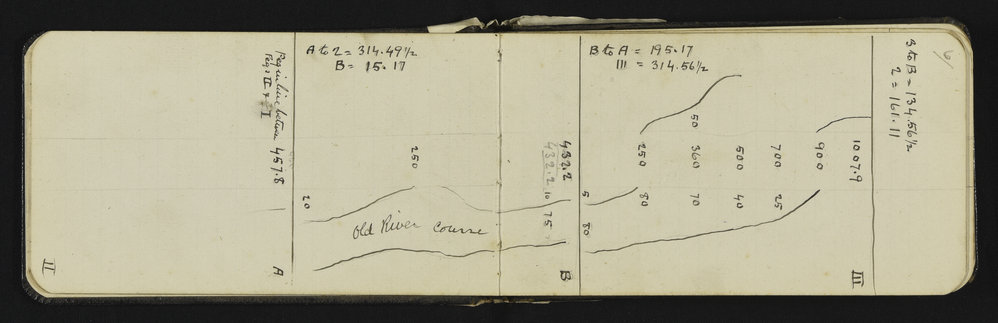 A to 2 = 314.49½
B = 15.17
Peg in line between
Pegs II & I
457.8
250
20
Old River Course
A
II
432.2
432.2
10
75
B
B to A = 195.17
III = 314.56½
50
250
360
500
700
900
1007.9
5
80
70
40
25
80
III
3 to B = 134.56½
2 = 161.11
6/